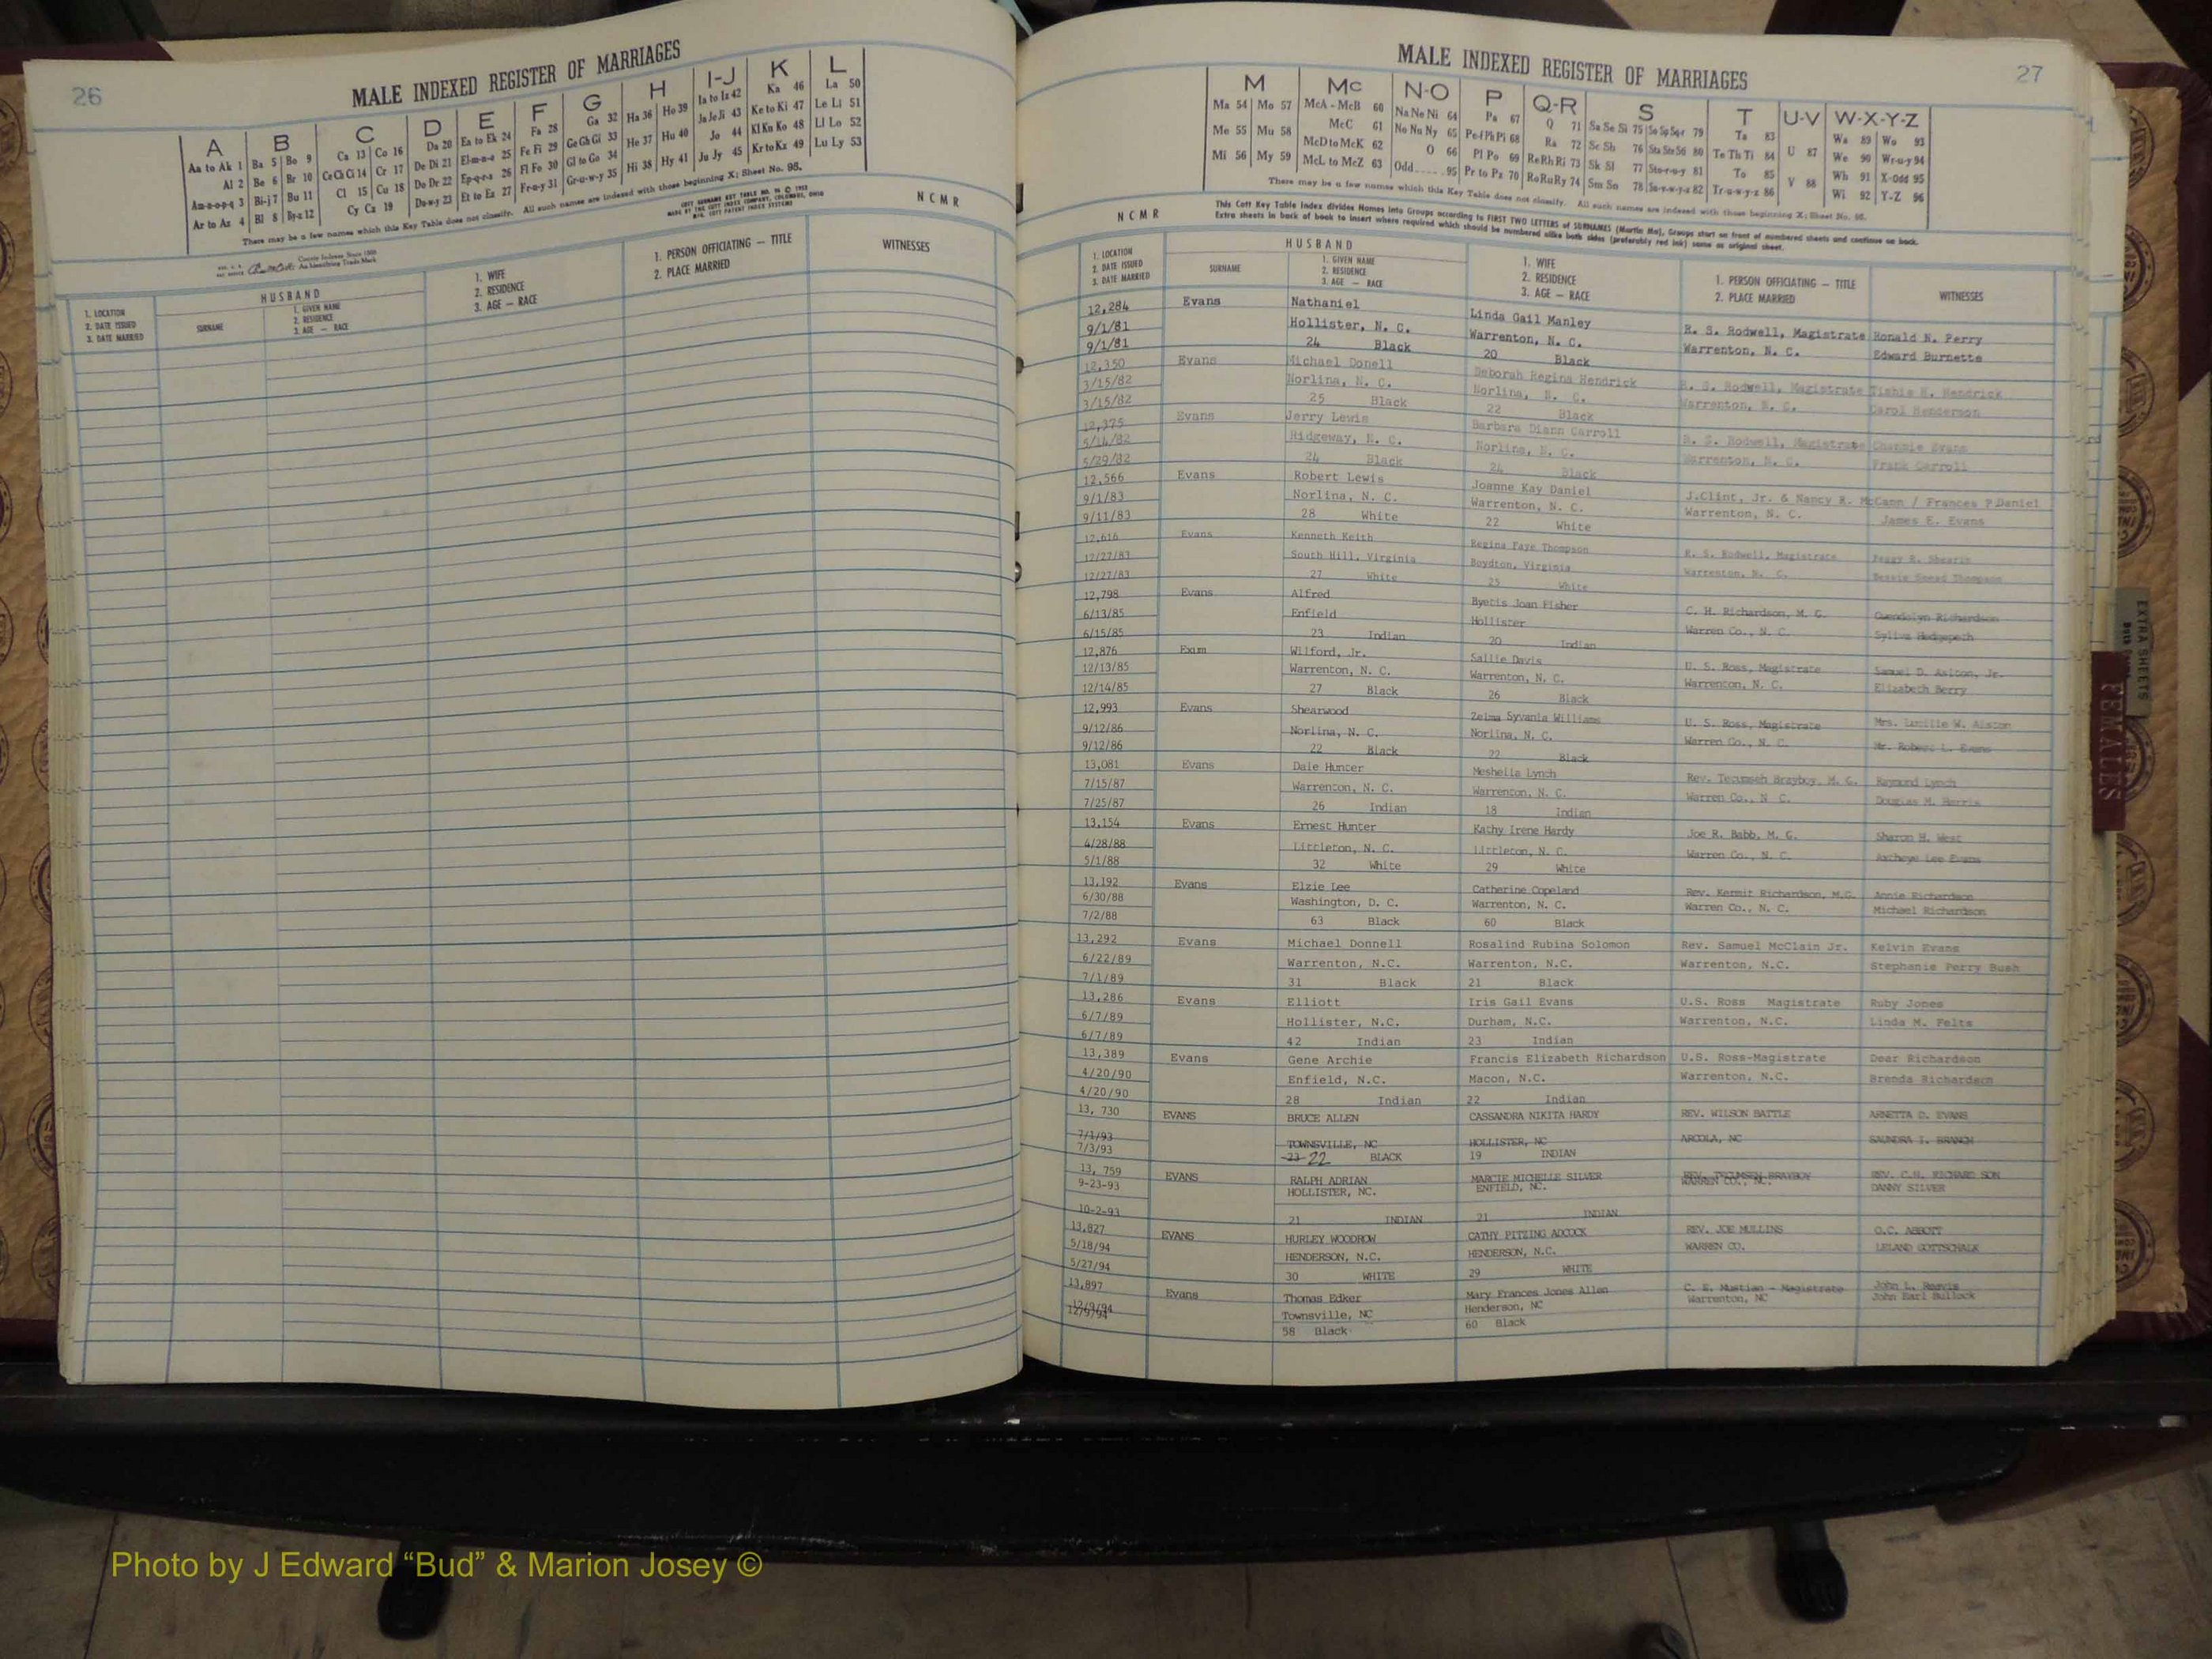 26
MALE INDEXED REGISTER OF MARRIAGES
A B C D E F G H I-J K L
Aa to Ak 1 Ba 5 Bo 9 Ca 13 Co 16 Da 20 Ea to Ek 24 Fa 28 Ga 32 Ha 36 Ho 39 Ia to Iz 42 Ka 46 La 50
Al 2 Be 6 Br 10 Ce Ch Ci 14 Cr 17 De Di 21 El-m-n-o 25 Fe Fi 29 Ge Gh Gi 33 He 37 Hu 40 Ja Je Ji 43 Ke to Ki 47 Le Li 51
Am-n-o-p-q 3 Bi-j 7 Bu 11 Cl 15 Cu 18 Do Dr 22 Ep-q-r-s 26 Fl Fo 30 Gl to Go 34 Hi 38 Hy 41 Jo 44 Kl Kn Ko 48 Ll Lo 52
Ar to Az 4 Bl 8 By-z 12 Cy Cz 19 Du-w-y 23 Et to Ez 27 Fr-u-y 31 Gr-u-w-y 35 Ju Jy 45 Kr to Kz 49 Lu Ly 53
There may be a few names which this Key Table does not classify. All such names are indexed with those beginning X; Sheet No. 95.
County Indexes Since 1888
An Identifying Trade Mark
COTT SURNAME KEY TABLE NO.
MADE BY THE COTT INDEX COMPANY, COLUMBUS, OHIO
COTT PATENT INDEX SYSTEMS
NCMR
1. LOCATION
2. DATE ISSUED
3. DATE MARRIED
HUSBAND
SURNAME
1. GIVEN NAME
2. RESIDENCE
3. AGE — RACE
1. WIFE
2. RESIDENCE
3. AGE — RACE
1. PERSON OFFICIATING — TITLE
2. PLACE MARRIED
WITNESSES
27
MALE INDEXED REGISTER OF MARRIAGES
M Mc N-O P Q-R S T U-V W-X-Y-Z
Ma 54 Mo 57 McA - McB 60 Na Ne Ni 64 Pa 67 Q 71 Sa Se Si 75 So Sp Sq-r 79 Ta 83 U 87 Wa 89 Wo 93
Me 55 Mu 58 McC 61 No Nu Ny 65 Pe-f Ph Pi 68 Ra 72 Sc Sh 76 Sta Ste Sti 80 Te Th Ti 84 V 88 We 90 Wr-u-y 94
Mi 56 My 59 McD to McK 62 O 66 Pl Po 69 Re Rh Ri 73 Sk Sl 77 Sto-r-u-y 81 To 85 Wh 91 X-Odd 95
McL to McZ 63 Odd 95 Pr to Pz 70 Ro Ru Ry 74 Sm Sn 78 Su-v-w-y-z 82 Tr-u-w-y-z 86 Wi 92 Y-Z 96
There may be a few names which this Key Table does not classify. All such names are indexed with those beginning X; Sheet No. 95.
NCMR
This Cott Key Table Index divides Names into Groups according to FIRST TWO LETTERS of SURNAMES (Martin Ma), Groups start on front of numbered sheets and continue on back.
Extra sheets in back of book to insert where required which should be numbered alike both sides (preferably red ink) same as original sheet.
1. LOCATION
2. DATE ISSUED
3. DATE MARRIED
HUSBAND
SURNAME
1. GIVEN NAME
2. RESIDENCE
3. AGE — RACE
1. WIFE
2. RESIDENCE
3. AGE — RACE
1. PERSON OFFICIATING — TITLE
2. PLACE MARRIED
WITNESSES
12,284 Evans Nathaniel Linda Gail Manley R. S. Rodwell, Magistrate Ronald N. Perry
9/1/81 Hollister, N. C. Warrenton, N. C. Warrenton, N. C. Edward Burnette
9/1/81 24 Black 20 Black
12,350 Evans Michael Donell Deborah Regina Hendrick R. S. Rodwell, Magistrate Hendrick
3/15/82 Norlina, N. C. Norlina, N. C. Warrenton, N. C. Carol Henderson
3/15/82 25 Black 22 Black
12,375 Evans Jerry Lewis Barbara Diann Carroll R. S. Rodwell, Magistrate Evans
5/14/82 Ridgeway, N. C. Norlina, N. C. Warrenton, N. C. Frank Carroll
5/29/82 24 Black 24 Black
12,566 Evans Robert Lewis Joanne Kay Daniel J.Clint, Jr. & Nancy R. McCann / Frances P Daniel
9/1/83 Norlina, N. C. Warrenton, N. C. Warrenton, N. C. James E. Evans
9/11/83 28 White 22 White
12,616 Evans Kenneth Keith Regina Faye Thompson R. S. Rodwell, Magistrate Peggy R. Shearin
12/27/83 South Hill, Virginia Boydton, Virginia Warrenton, N. C. Bessie Sneed Thompson
12/27/83 27 White 25 White
12,798 Evans Alfred Byetis Joan Fisher C. H. Richardson, M. G. Gwendolyn Richardson
6/13/85 Enfield Hollister Warren Co., N. C. Syliva Hedgepeth
6/15/85 23 Indian 20 Indian
12,876 Exum Wilford, Jr. Sallie Davis U. S. Ross, Magistrate Samuel D. Alston, Jr.
12/13/85 Warrenton, N. C. Warrenton, N. C. Warrenton, N. C. Elizabeth Berry
12/14/85 27 Black 26 Black
12,993 Evans Shearwood Zelma Syvania Williams U. S. Ross, Magistrate Mrs. Lucille W. Alston
9/12/86 Norlina, N. C. Norlina, N. C. Warren Co., N. C. Mr. Robert L. Evans
9/12/86 22 Black 22 Black
13,081 Evans Dale Hunter Meshella Lynch Rev. Tecumseh Brayboy, M. G. Raymond Lynch
7/15/87 Warrenton, N. C. Warrenton, N. C. Warren Co., N C. Douglas M. Harris
7/25/87 26 Indian 18 Indian
13,154 Evans Ernest Hunter Kathy Irene Hardy Joe R. Babb, M. G. Sharon H. West
4/28/88 Littleton, N. C. Littleton, N. C. Warren Co., N. C. Lee Evans
5/1/88 32 White 29 White
13,192 Evans Elzie Lee Catherine Copeland Rev. Kermit Richardson, M.G. Annie Richardson
6/30/88 Washington, D. C. Warrenton, N. C. Warren Co., N. C. Michael Richardson
7/2/88 63 Black 60 Black
13,292 Evans Michael Donnell Rosalind Rubina Solomon Rev. Samuel McClain Jr. Kelvin Evans
6/22/89 Warrenton, N.C. Warrenton, N.C. Warrenton, N.C. Stephanie Perry Bush
7/1/89 31 Black 21 Black
13,286 Evans Elliott Iris Gail Evans U.S. Ross Magistrate Ruby Jones
6/7/89 Hollister, N.C. Durham, N.C. Warrenton, N.C. Linda M. Felts
6/7/89 42 Indian 23 Indian
13,389 Evans Gene Archie Francis Elizabeth Richardson U.S. Ross-Magistrate Dear Richardson
4/20/90 Enfield, N.C. Macon, N.C. Warrenton, N.C. Brenda Richardson
4/20/90 28 Indian 22 Indian
13, 730 EVANS BRUCE ALLEN CASSANDRA NIKITA HARDY REV. WILSON BATTLE ARNETTA D. EVANS
7/1/93 TOWNSVILLE, NC HOLLISTER, NC ARCOLA, NC SAUNDRA I. BRANCH
7/3/93 23 22 BLACK 19 INDIAN
13, 759 EVANS RALPH ADRIAN MARCIE MICHELLE SILVER REV. TECUMSEH BRAYBOY REV. C.H. RICHARD SON
9-23-93 HOLLISTER, NC. ENFIELD, NC. WARREN CO., NC. DANNY SILVER
10-2-93 21 INDIAN 21 INDIAN
13,827 EVANS HURLEY WOODROW CATHY PITZING ADCOCK REV. JOE MULLINS O.C. ABBOTT
5/18/94 HENDERSON, N.C. HENDERSON, N.C. WARREN CO. LELAND GOTTSCHALK
5/27/94 30 WHITE 29 WHITE
13,897 Evans Thomas Edker Mary Frances Jones Allen C. E. Mustian - Magistrate John L. Reavis
12/9/94 Townsville, NC Henderson, NC Warrenton, NC John Earl Bullock
12/9/94 58 Black 60 Black
EXTRA SHEETS
FEMALES
Photo by J Edward “Bud” & Marion Josey ©